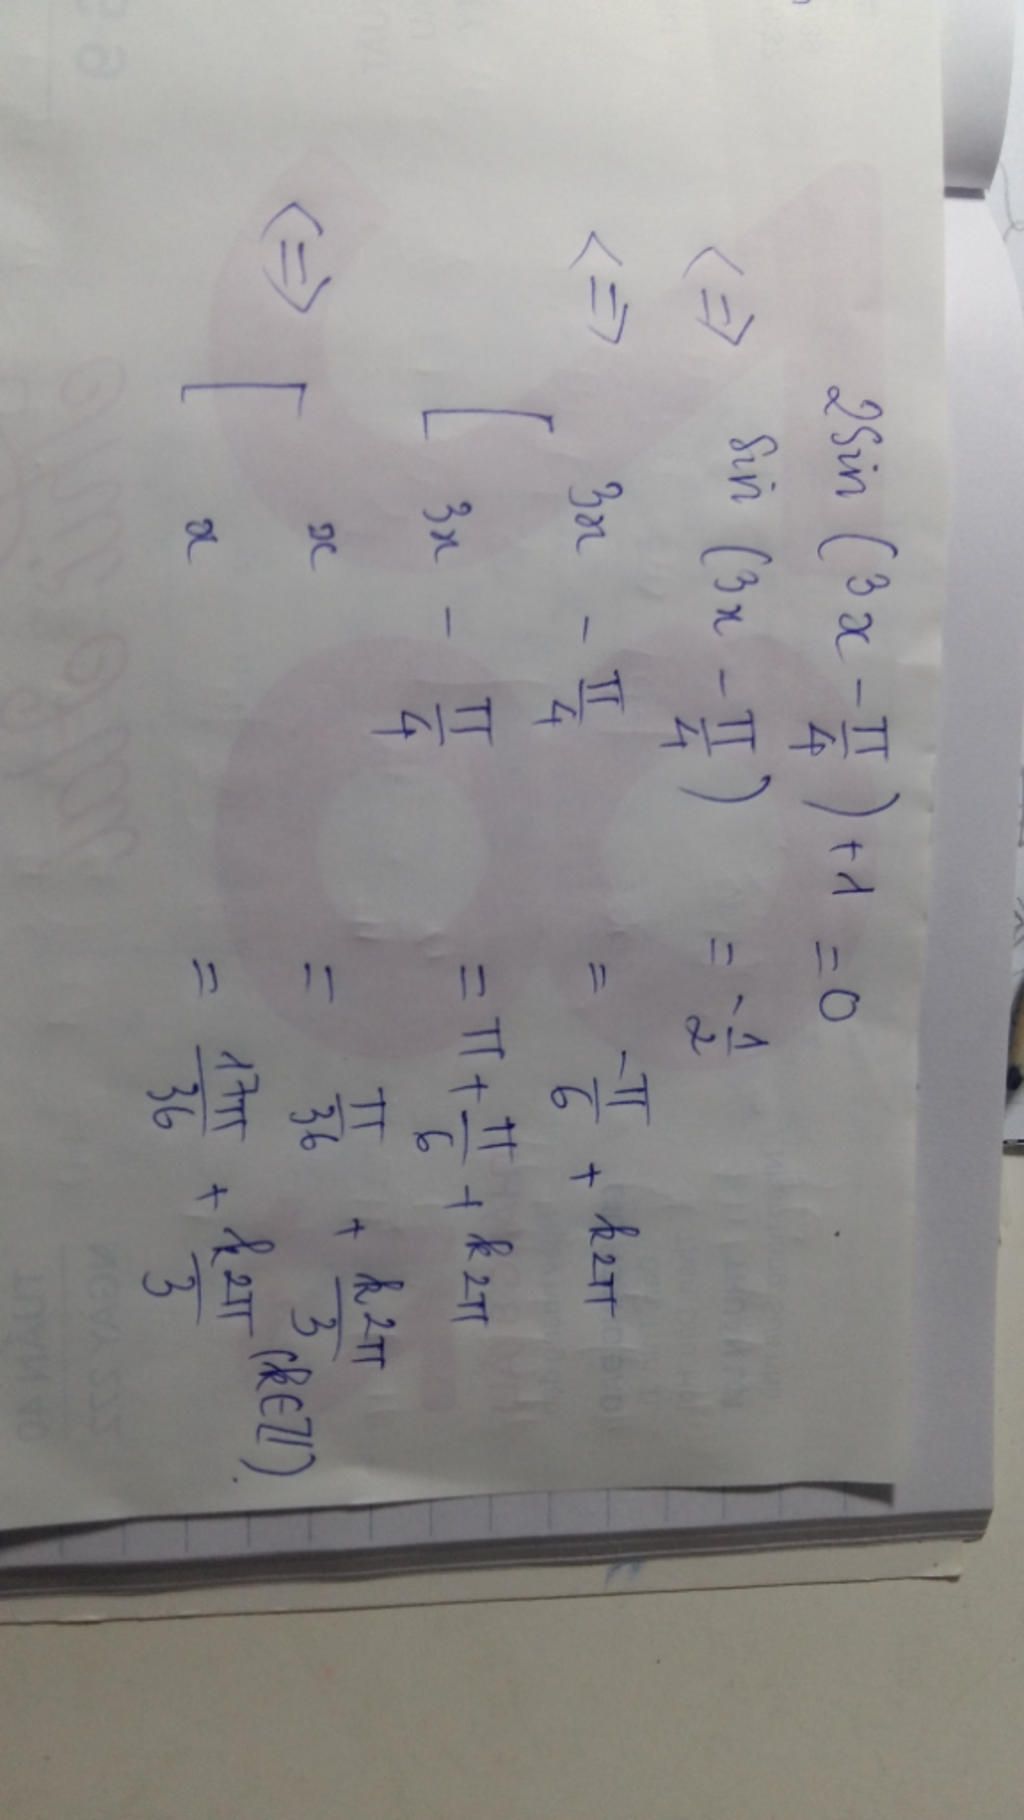 2sin (3x - π/4) + 1 = 0
<=> sin (3x - π/4) = -1/2
<=> [ 3x - π/4 = -π/6 + k2π
3x - π/4 = π + π/6 + k2π
<=> [ x = π/36 + k2π/3
x = 17π/36 + k2π/3 (k∈Z).